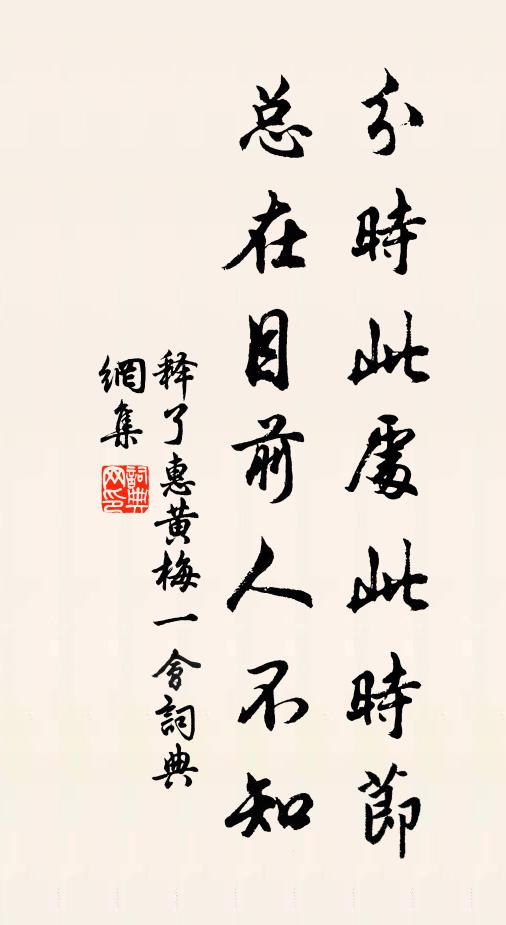 分時此處此時節
总在目前人不知
释了惠黄梅一會詞典
網集
詞典
网印